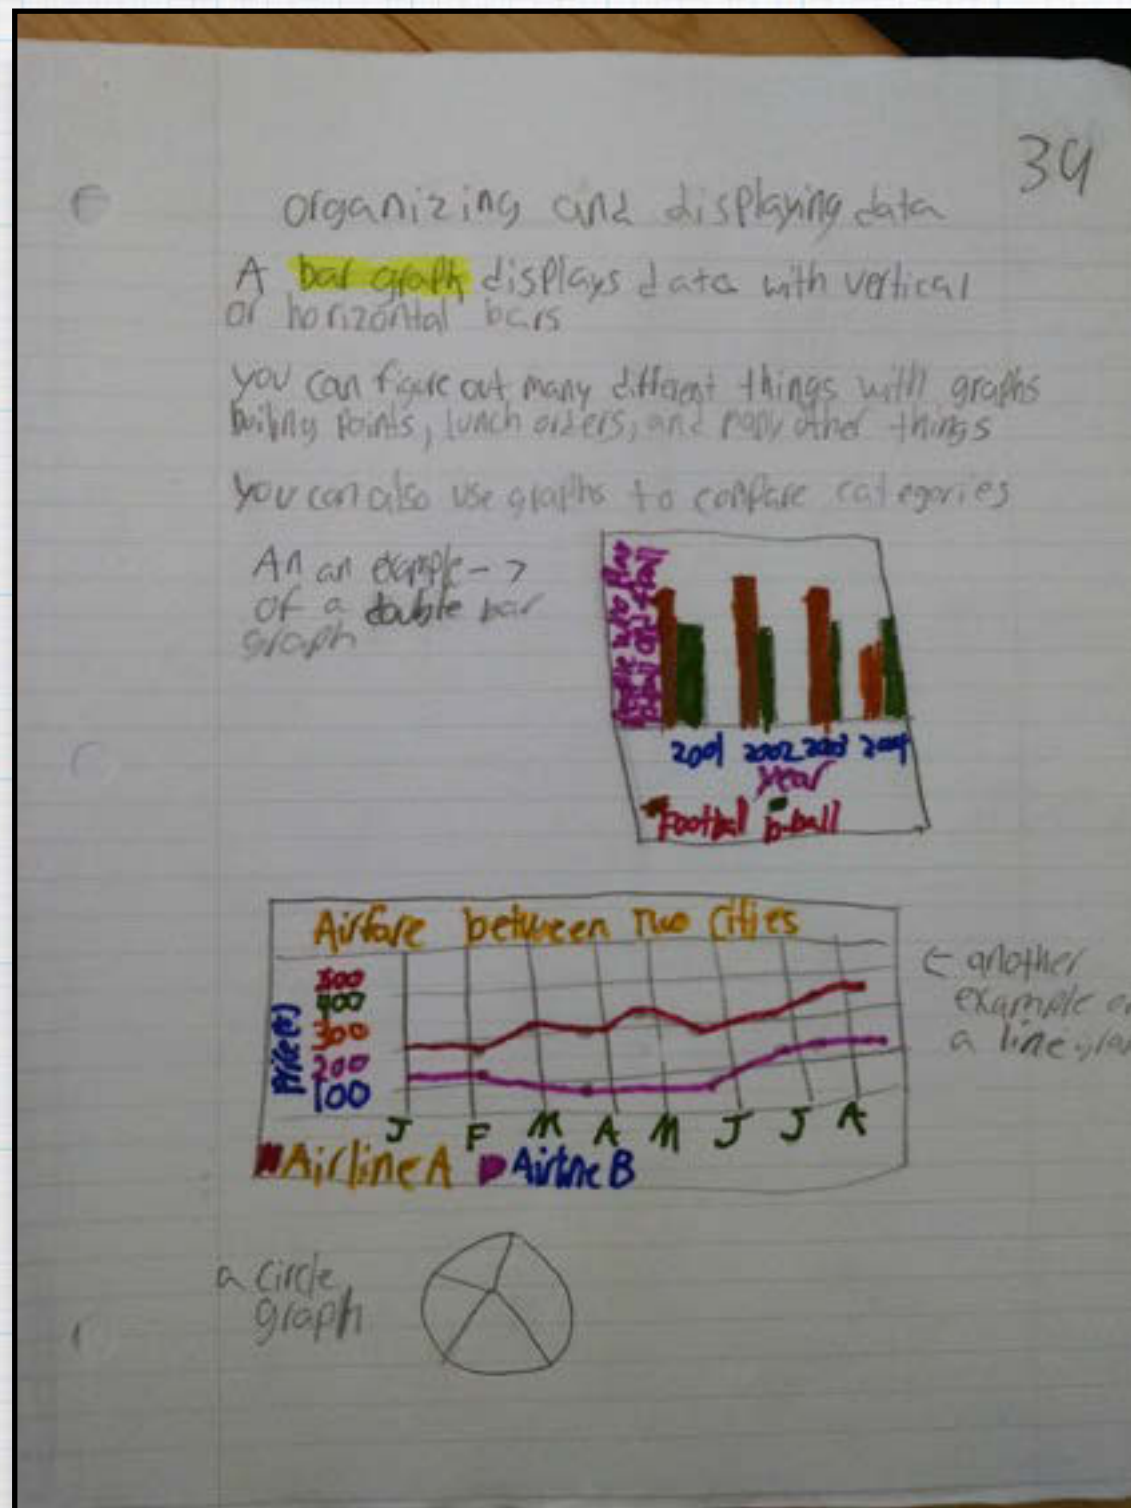 34
organizing and displaying data
A bar graph displays data with vertical
or horizontal bars
you can figure out many different things with graphs
points, lunch orders, and many other things
you can also use graphs to compare categories
An an example -->
of a double bar
graph
2001 2002 2003 2004
year
Football b-ball
Airfare between Two Cities
500
400
300
200
100
Price($)
J F M A M J J A
Airline A Airline B
← another
example of
a line
a circle
graph